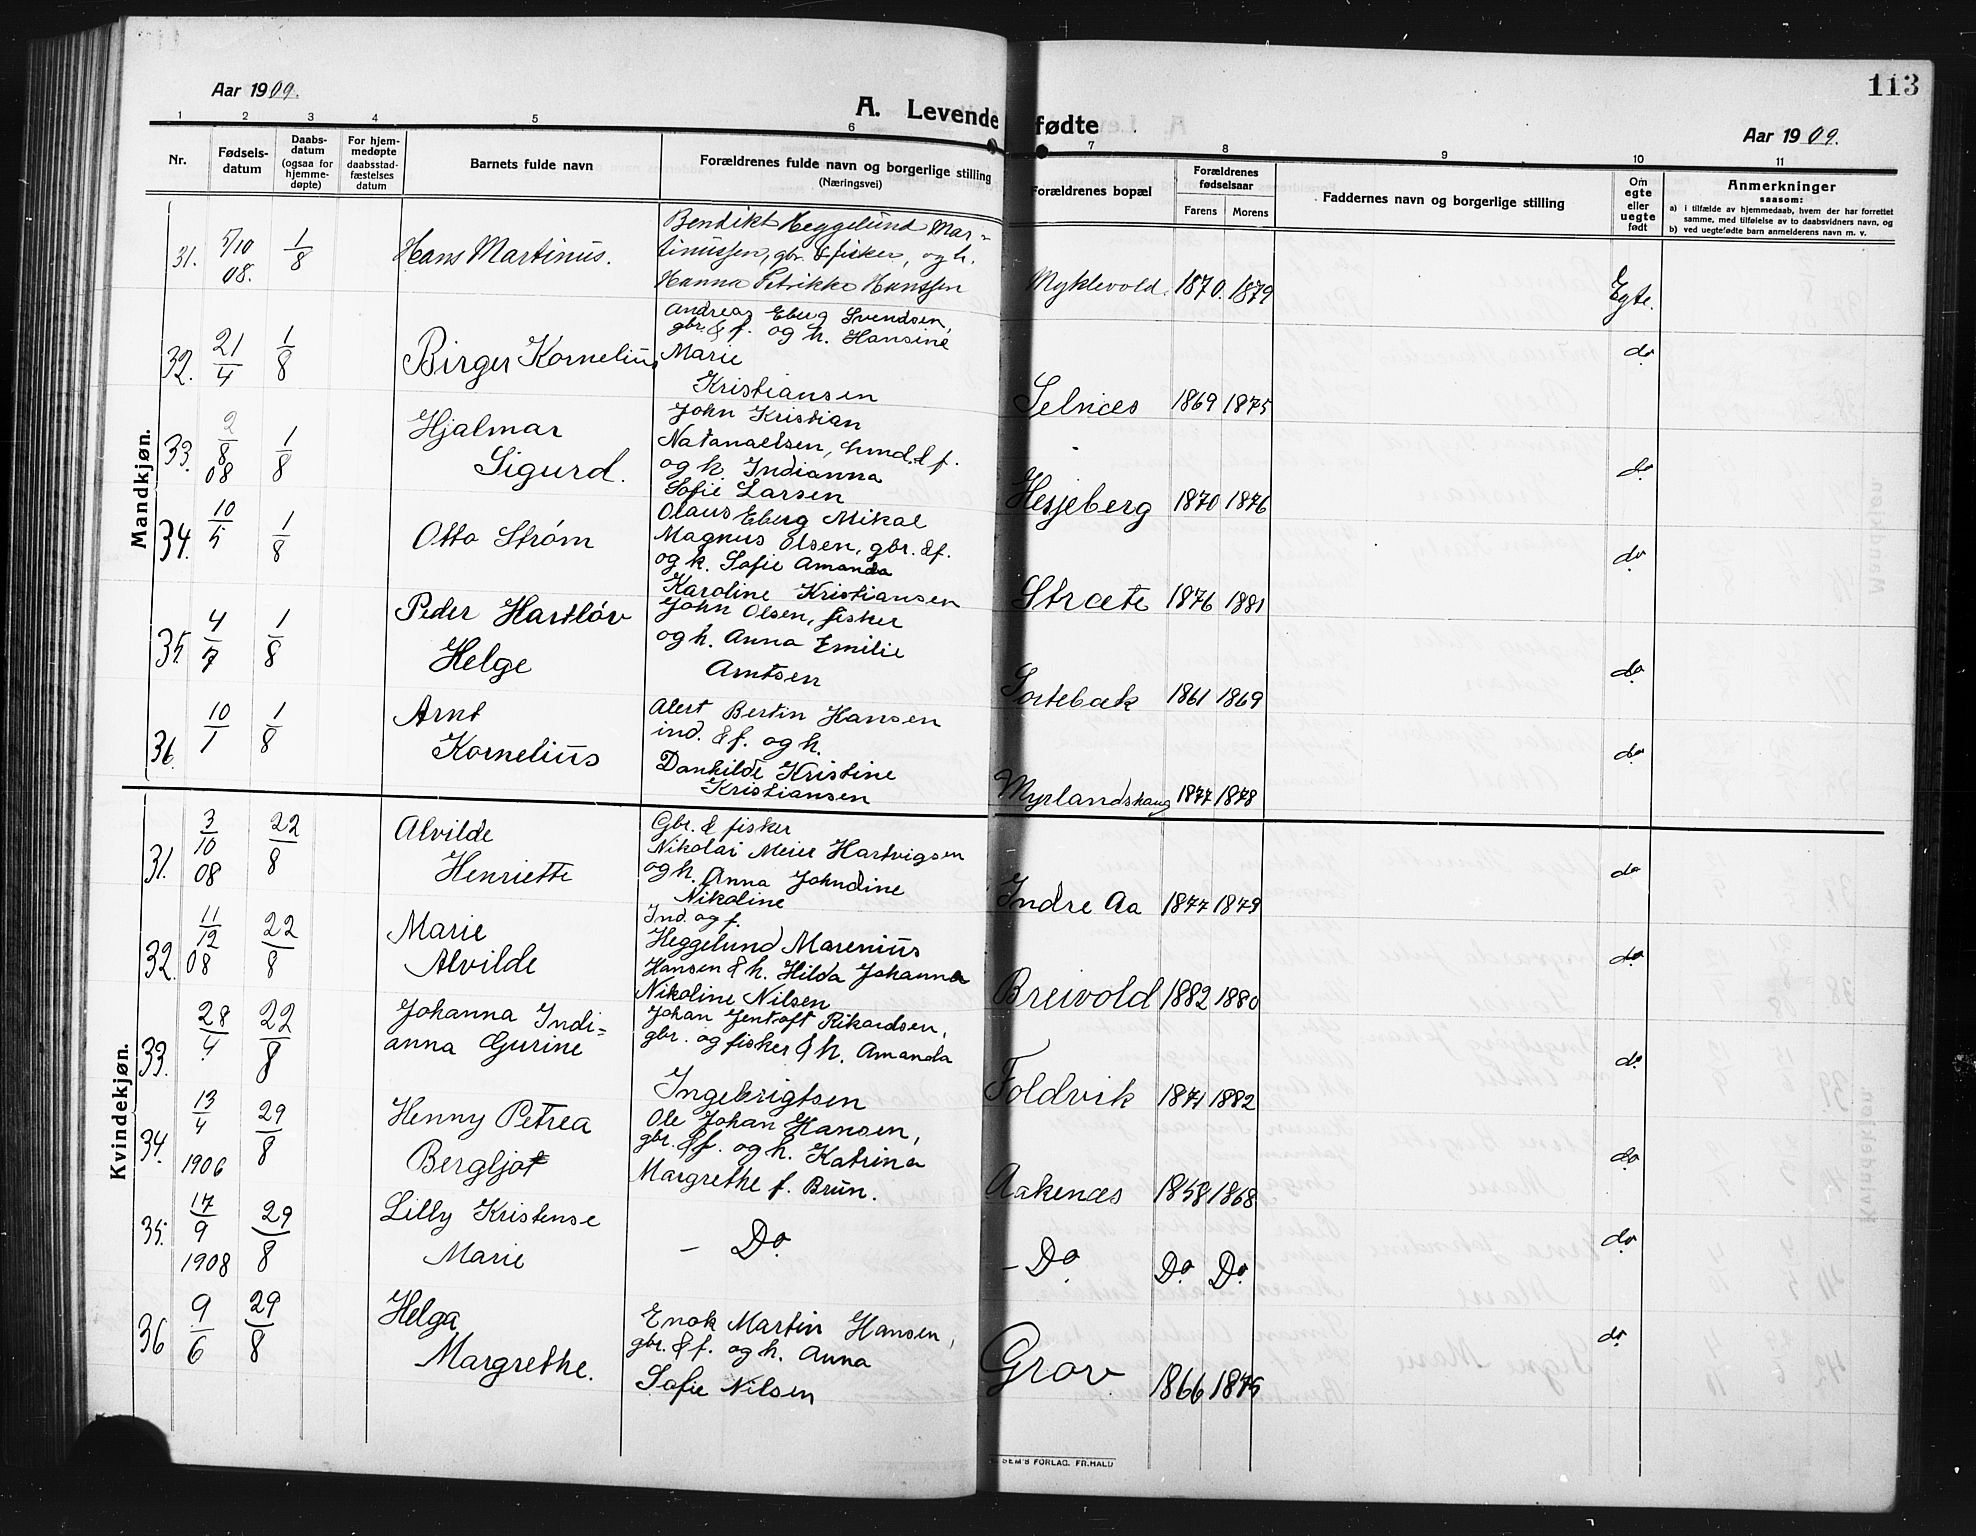 113
Aar 1909.
A. Levende fødte
Aar 1909.
1 2 3 4 5 6 7 8 9 10 11
Nr.
Fødsels-
datum
Daabs-
datum
(ogsaa for
hjemme-
døpte)
For hjem-
medøpte
daabsstad-
fæstelses
datum
Barnets fulde navn
Forældrenes fulde navn og borgerlige stilling
(Næringsvei)
Forældrenes bopæl
Forældrenes
fødselsaar
Farens Morens
Faddernes navn og borgerlige stilling
Om
egte
eller
uegte
født
Anmerkninger
saasom:
a) i tilfælde av hjemmedaab, hvem der har forrettet
samme, med tilføielse av to daabsvidners navn, og
b) ved uegtefødte barn anmelderens navn m. v.
Mandkjøn.
31. 5/10 08. 1/8 Hans Martinus.
Bendikt Heggelund Mar-
tinussen, gbr. & fisker, og h.
Hanna Petrikke Hanssen
Myklevold. 1870. 1879 Egte.
32. 21/4 1/8 Birger Kornelius
Andreas Eberg Svendsen,
gbr. & f. og h. Hansine
Marie
Kristiansen
Selnæs 1869 1875 do
33. 2/8 08 1/8 Hjalmar
Sigurd.
John Kristian
Natanaelsen, hmd. & f.
og h Indianna
Sofie Larsen
Hesjeberg 1870 1876 do
34. 10/5 1/8 Otto Strøm
Olaus Eberg Mikal
Magnus Olsen, gbr. & f.
og h. Sofie Amanda
Karoline Kristiansen
Stræte 1876 1881 do
35. 4/7 1/8 Peder Hartløv
Helge
John Olsen, fisker
og h. Anna Emilie
Arntsen
Sortebæk 1861 1869 do
36. 10/1 1/8 Arnt
Kornelius
Alert Bertin Hansen
ind. & f. og h.
Danhilde Kristine
Kristiansen
Myrlandshaug 1877 1878 do
Kvindekjøn.
31. 3/10 08 22/8 Alvilde
Henriette
Gbr. & fisker
Nikolai Meier Hartvigsen
og h. Anna Johndine
Nikoline
Indre Aa 1877 1879 do
32. 11/12 08 22/8 Marie
Alvilde
Ind. og f.
Heggelund Marenius
Hansen & h. Hilda Johanna
Nikoline Nilsen
Breivold 1882 1880 do
33. 28/4 22/8 Johanna Indi-
anna Gurine
Johan Jentoft Rikardsen,
gbr. og fisker & h. Amanda
Ingebrigtsen
Foldvik 1871 1882 do
34. 13/4 1906 29/8 Henny Petrea
Bergljot
Ole Johan Hansen,
gbr. & f. og h. Katrina
Margrethe f. Brun.
Aakenæs 1858 1868 do
35. 17/9 1908 29/8 Lilly Kristense
Marie
— Do. — Do. Do. Do. do
36 9/6 29/8 Helga
Margrethe.
Enok Martin Hansen,
gbr. & f. og h. Anna
Sofie Nilsen
Grov 1866 1875 do
SEM'S FORLAG, FR.HALD